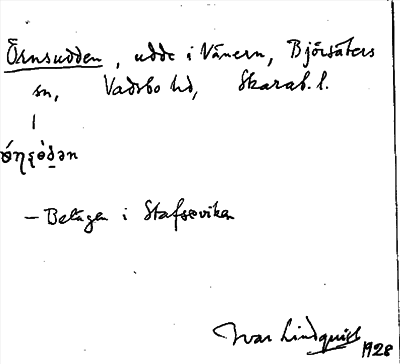 Örnsudden, udde i Vänern, Björsäters
sn, Vadsbo hd, Skarab. l.
|
— Belägen i Stafseviken
Ivar Lindquist
1928